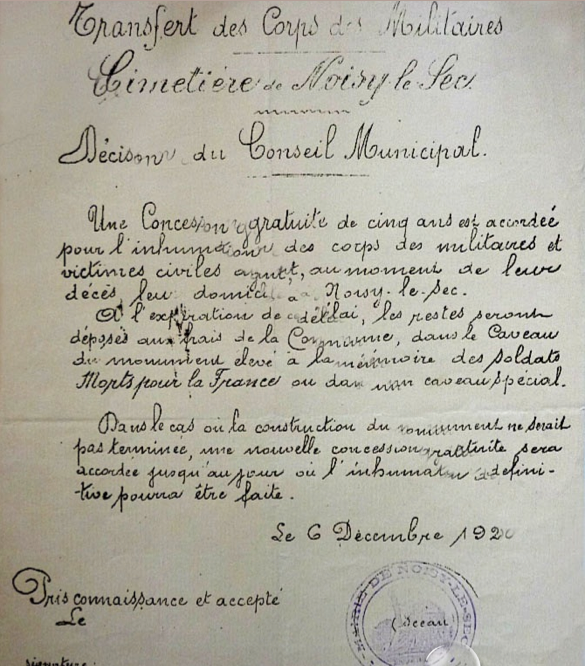 Transfert des Corps des Militaires
Cimetière de Noisy-le-Sec
Décison du Conseil Municipal.
Une Concession gratuite de cinq ans est accordée
pour l'inhumation des corps des militaires et
victimes civiles ayant, au moment de leur
décès leur domicile à Noisy-le-Sec.
A l'expiration de ce délai, les restes seront
déposés aux frais de la Commune, dans le Caveau
du monument elevé à la mémoire des soldats
Morts pour la France ou dans un caveau spécial.
Dans le cas où la construction du monument ne serait
pas terminée, une nouvelle concession gratuite sera
accordée jusqu'au jour où l'inhumation défini-
tive pourra être faite.
Le 6 Décembre 1920
Pris connaissance et accepté
Le
signature:
MAIRIE DE NOISY-LE-SEC
(Sceau)